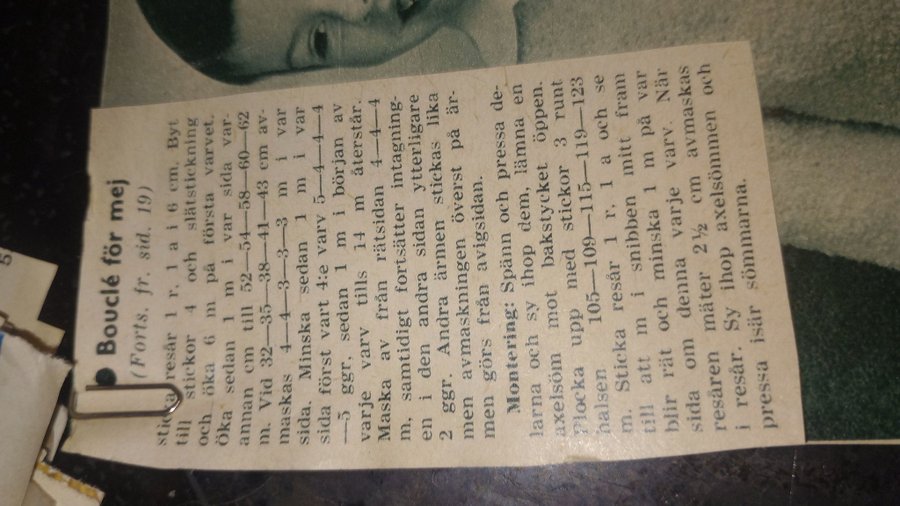 ● Bouclé för mej
(Forts. fr. sid. 19)
sticka resår 1 r, 1 a i 6 cm. Byt
till stickor 4 och slätstickning
och öka 6 m på första varvet.
Öka sedan 1 m i var sida var-
annan cm till 52—54—58—60—62
m. Vid 32—35—38—41—43 cm av-
maskas 4—4—3—3—3 m i var
sida. Minska sedan 1 m i var
sida först vart 4:e varv 5—4—4—4
—5 ggr, sedan 1 m i början av
varje varv tills 14 m återstår.
Maska av från rätsidan 4—4—4
m, samtidigt fortsätter intagning-
en i den andra sidan ytterligare
2 ggr. Andra ärmen stickas lika
men avmaskningen överst på är-
men görs från avigsidan.
Montering: Spänn och pressa de-
larna och sy ihop dem, lämna en
axelsöm mot bakstycket öppen.
Plocka upp med stickor 3 runt
halsen 105—109—115—119—123
m. Sticka resår 1 r, 1 a och se
till att m i snibben mitt fram
blir rät och minska 1 m på var
sida om denna varje varv. När
resåren mäter 2½ cm avmaskas
i resår. Sy ihop axelsömmen och
pressa isär sömmarna.
5